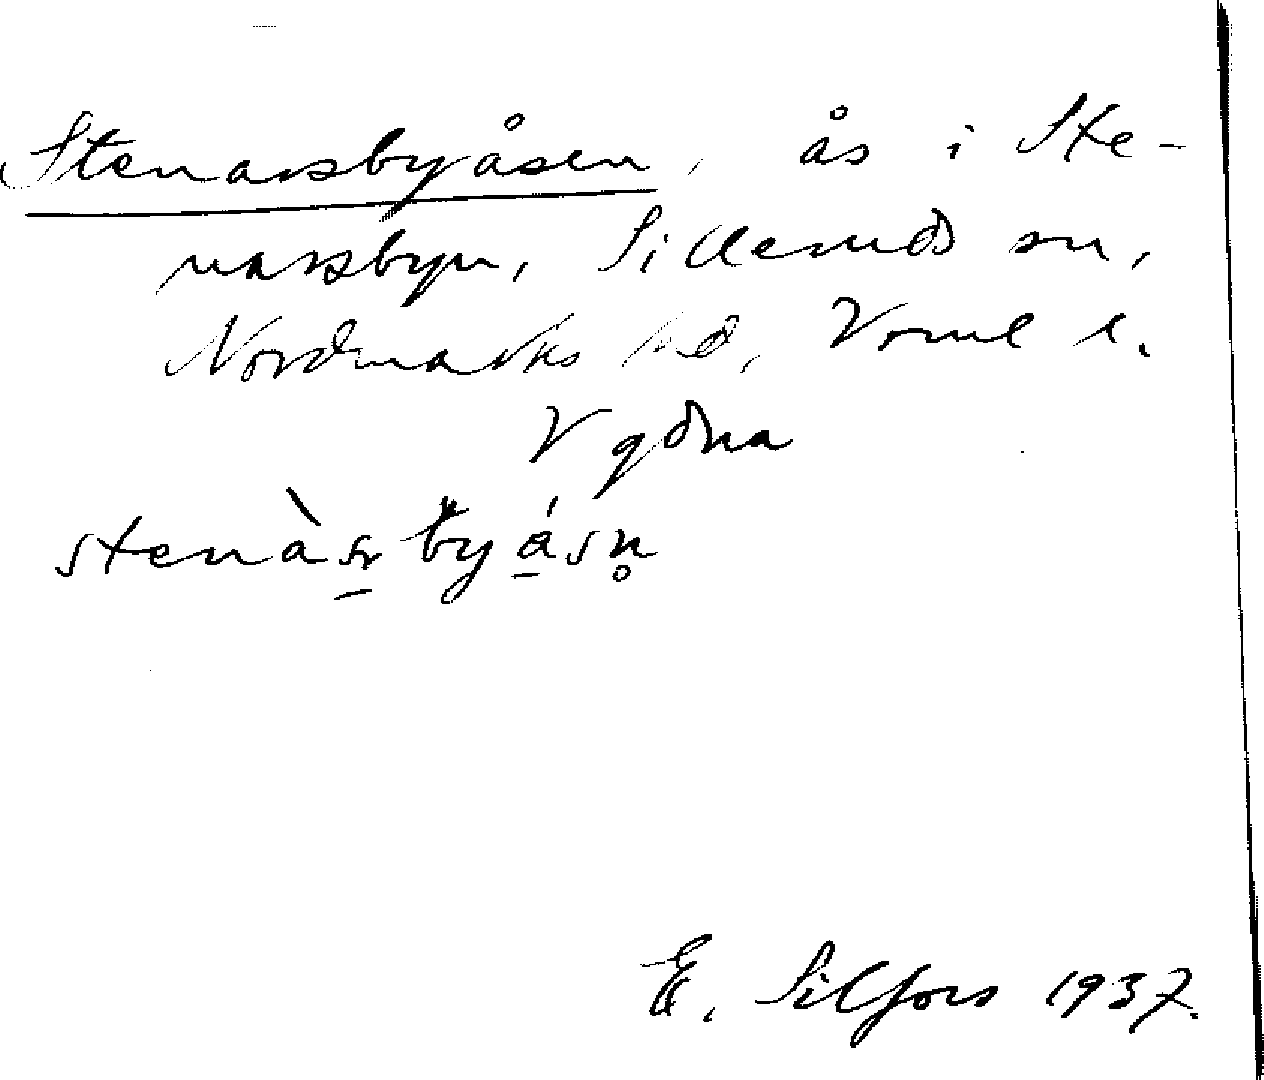 Stenarsbyåsen, ås i Ste-
narsbyn, Silleruds sn,
Nordmarks hd, Vrml l.
V gdna
stenàs̱byá̱sn̥
E. Silfors 1937.